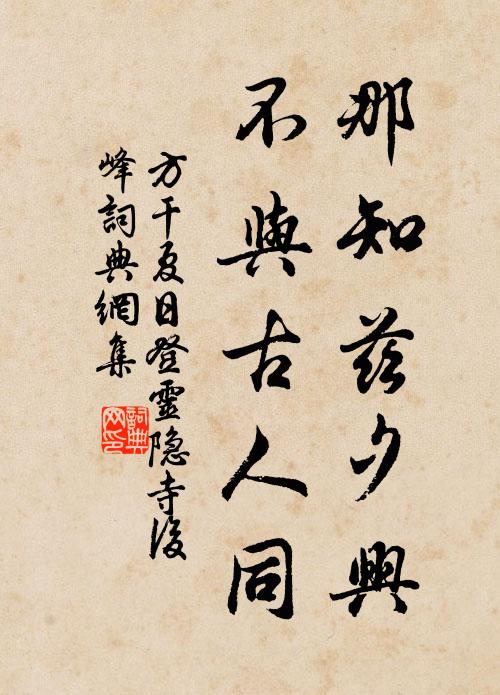 那知茲夕興
不與古人同
方干夏日登靈隐寺後
峰詞典網集
詞典
网印